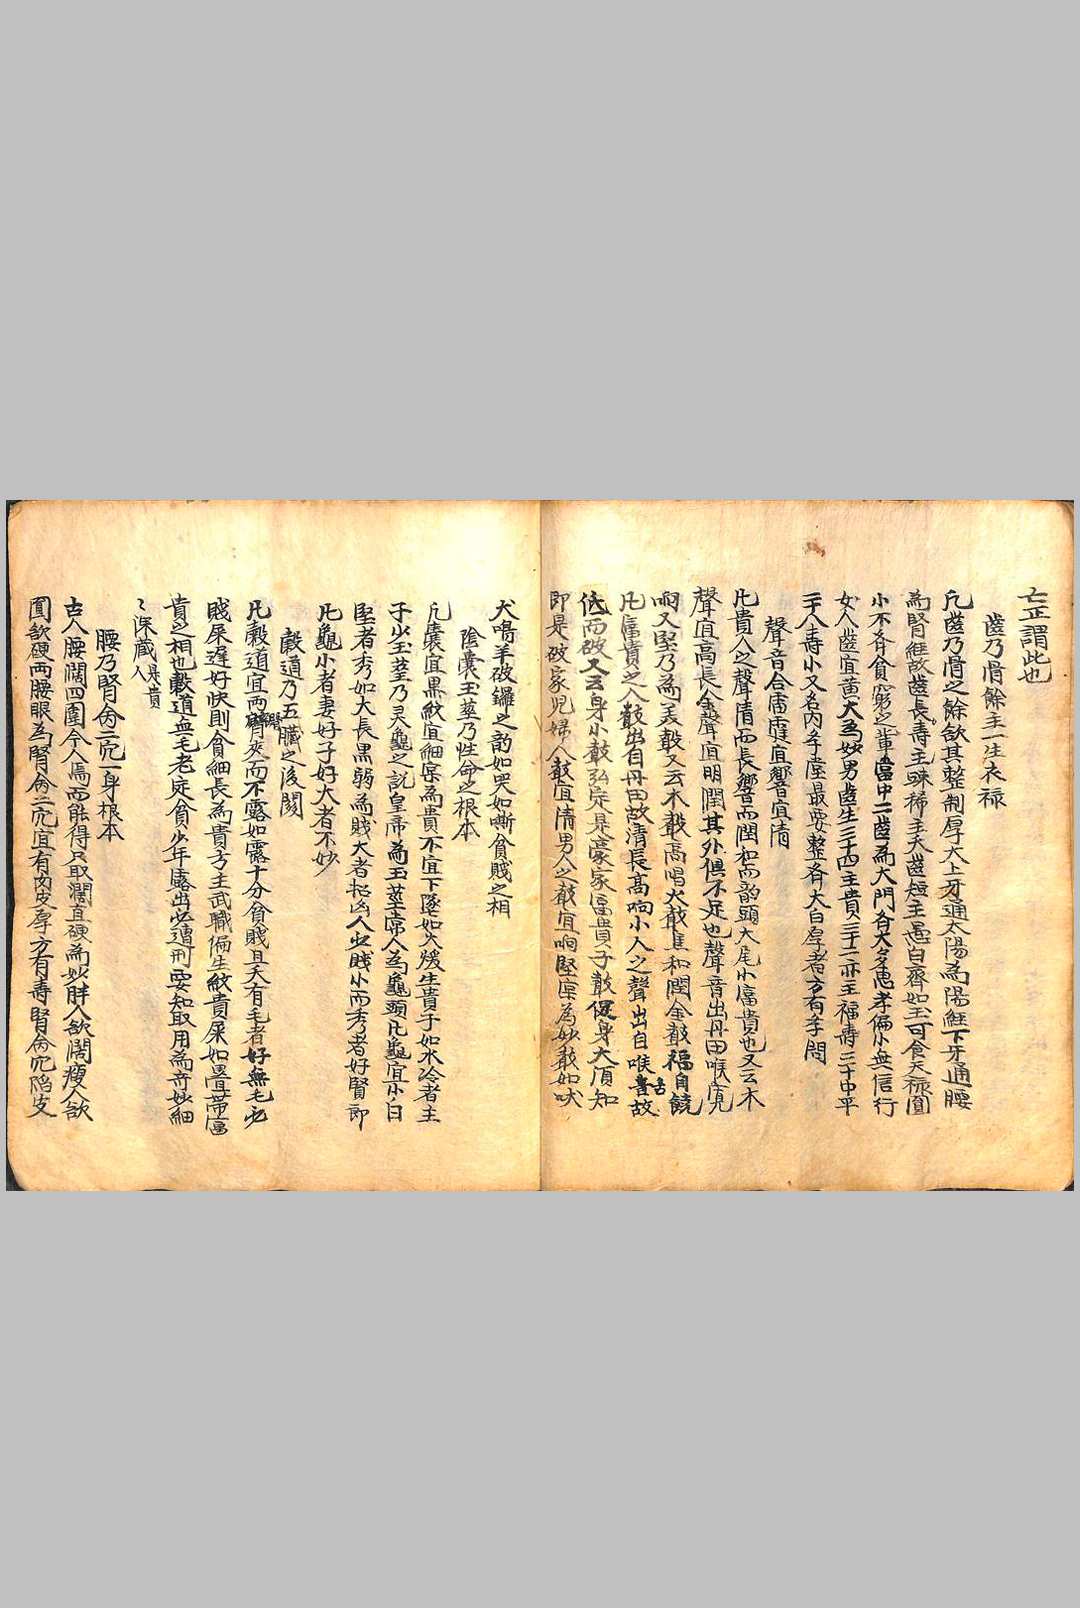 亡正謂此也
齒乃骨餘主一生衣祿
凡齒乃骨之餘欲其整制厚大上牙通太陽為陽經下牙通腰
為腎經故齒長壽主踈稀主夭齒短主愚白齊如玉可食天祿圓
小不齊貧窮之輩當中二齒為大門齊大多忠孝偏小無信行
女人齒宜黃大為妙男齒生三十四主貴三十二亦主福壽三十中平
二十八壽小又名內孝堂最要整齊大白厚者方有孝
聲音合雷霆宜響宜清
凡貴人之聲清而長響而閏和而韵頭大尾小富貴也又云木
聲宜高長金聲宜明閏其外俱不足也聲音出丹田喉寬
响又堅乃為美聲又云木聲高唱火聲焦和閏金聲福自饒
凡富貴之人聲出自丹田故清長高响小人之聲出自喉舌故
低而破又云身小聲弘定是豪家富貴子聲促身大須知
即是破家兒婦人聲宜清男人之聲宜响堅深為妙聲如吠
犬鳴羊破鑼之韵如哭如嘶貧賤之相
陰囊玉莖乃性命之根本
凡囊宜黑紋宜細深為貴不宜下墜如火煖生貴子如水冷者主
子少玉莖乃灵龜之說皇帝為玉莖常人為龜頭凡龜宜小白
堅者秀如大長黑弱為賤大者招凶人必賤小而秀者好賢郎
凡龜小者妻好子好大者不妙
穀道乃五臟之後関
凡穀道宜兩臀夾而不露如露十分貧賤且夭有毛者好無毛必
賤屎遲好快則貧細長為貴方主武職偏生紋貴屎如疊帶富
貴之相也穀道無毛老定貧少年露出必遭刑要知取用為奇妙細
〻深藏是貴人
腰乃腎命二穴一身根本
古人腰闊四圍今人焉而能得只取濶直硬為妙胖人欲闊瘦人欲
圓欲硬兩腰眼為腎命二穴宜有肉皮厚方有壽腎命穴陷皮